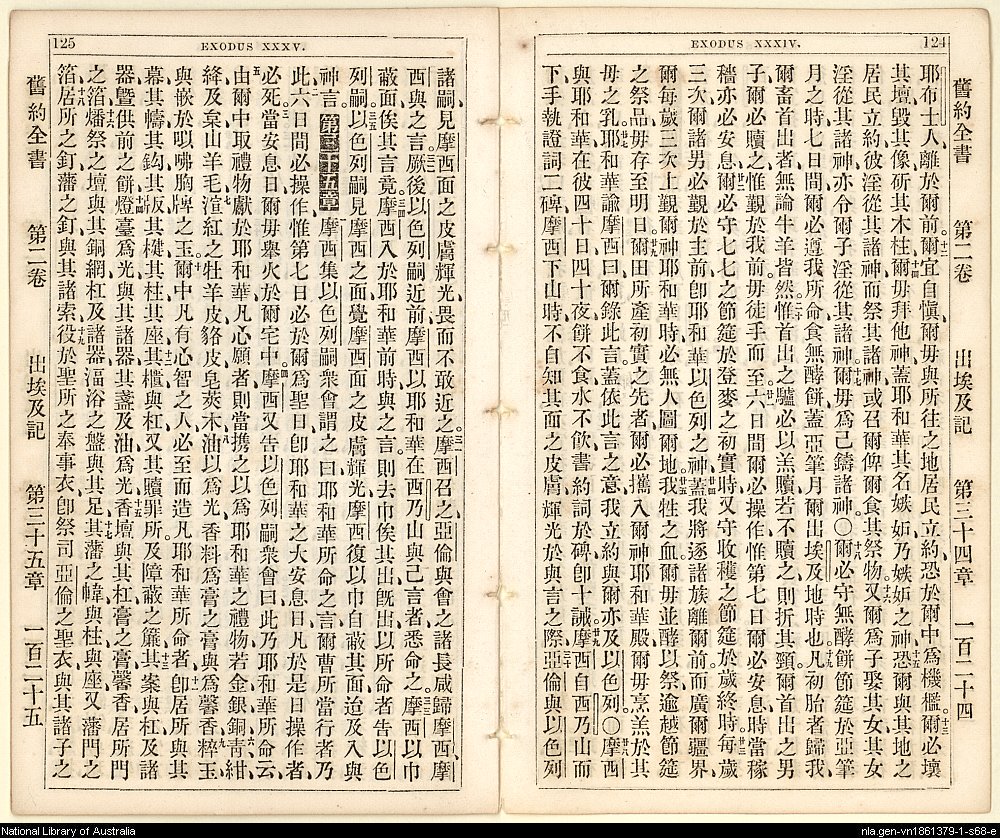 EXODUS XXXIV. 124
舊約全書 第二卷 出埃及記 第三十四章 一百二十四
耶布士人、離於爾前。十二爾宜自愼、爾毋與所往之地居民立約、恐於爾中爲機檻。十三爾必壞
其壇、毀其像、斫其木柱。十四爾毋拜他神、蓋耶和華其名嫉妬、乃嫉妬之神。十五恐爾與其地之
居民立約、彼淫從其諸神、而祭其諸神、或召爾、俾爾食其祭物。十六又爾爲子娶其女、其女
淫從其諸神、亦令爾子淫從其諸神。十七爾毋爲己鑄諸神○十八爾必守無酵餅節筵、於亞筆
月之時、七日間爾必遵我所命食無酵餅、蓋亞筆月爾出埃及地時也。十九凡初胎者歸我、
爾畜首出者、無論牛羊皆然。二十惟首出之驢、必以羔贖、若不贖之、則折其頸、爾首出之男
子、爾必贖之、惟覲於我前、毋徒手而至。廿一六日間爾必操作、惟第七日爾必安息、時當稼
穡、亦必安息。廿二爾必守七七之節筵、於登麥之初實時、又守收穫之節筵、於歲終時。廿三每歲
三次、爾諸男必覲於主前、卽耶和華以色列之神。廿四蓋我將逐諸族離爾前、而廣爾疆界、
爾每歲三次上覲爾神耶和華時、必無人圖爾地。廿五我牲之血、爾毋並酵以祭、逾越節筵
之祭品、毋存至明日。廿六爾田所產初實之先者、爾必攜入爾神耶和華殿、爾毋烹羔於其
母之乳。廿七耶和華諭摩西曰、爾錄此言、蓋依此言之意、我立約與爾、亦及以色列○廿八摩西
與耶和華在彼四十日四十夜、餅不食、水不飲、書約詞於碑、卽十誡。廿九摩西自西乃山而
下、手執證詞二碑、摩西下山時、不自知其面之皮膚輝光、於與言之際。三十亞倫與以色列
125 EXODUS XXXV.
諸嗣見摩西面之皮膚輝光、畏而不敢近之。三一摩西召之、亞倫與會之諸長咸歸摩西、摩
西與之言。三二厥後以色列嗣近前、摩西以耶和華在西乃山與己言者、悉命之。三三摩西以巾
蔽面、俟其言竟。三四摩西入於耶和華前時、與之言、則去巾、俟其出、旣出、以所命者告以色
列嗣。三五以色列嗣見摩西之面、覺摩西面之皮膚輝光、摩西復以巾自蔽其面、迨及入與
神言。 第三十五章 摩西集以色列嗣衆會、謂之曰、耶和華所命之言、爾曹所當行者、乃
此。二六日間必操作、惟第七日必於爾爲聖日、卽耶和華之大安息日、凡於是日操作者、
必死。三當安息日、爾毋舉火於爾宅中。四摩西又告以色列嗣衆會曰、此乃耶和華所命云、
五由爾中取禮物獻於耶和華、凡心願者、則當攜之、以爲耶和華之禮物、若金銀銅、六靑紺
絳、及枲、山羊毛、七渲紅之牡羊皮、貉皮、皂莢木、八油以爲光、香料爲膏之膏、與爲馨香、九粹玉
與嵌於㕭咈、胸牌之玉。十爾中凡有心智之人、必至而造凡耶和華所命者、十一卽居所與其
幕、其幬、其鈎、其版、其楗、其柱、其座、十二其櫃與杠、又其贖罪所、及障蔽之簾、十三其案與杠、及諸
器、曁供前之餅、十四燈臺爲光、與其諸器、其盞、及油爲光、十五香壇與其杠、膏之膏、馨香、居所門
之箔、十六燔祭之壇、與其銅網、杠及諸器、湢浴之盤與其足、十七其藩之幃與柱與座、又藩門之
箔、十八居所之釘、藩之釘、與其諸索、十九役於聖所之奉事衣、卽祭司亞倫之聖衣、與其諸子之
舊約全書 第二卷 出埃及記 第三十五章 一百二十五
National Library of Australia
nla.gen-vn1861379-1-s68-e